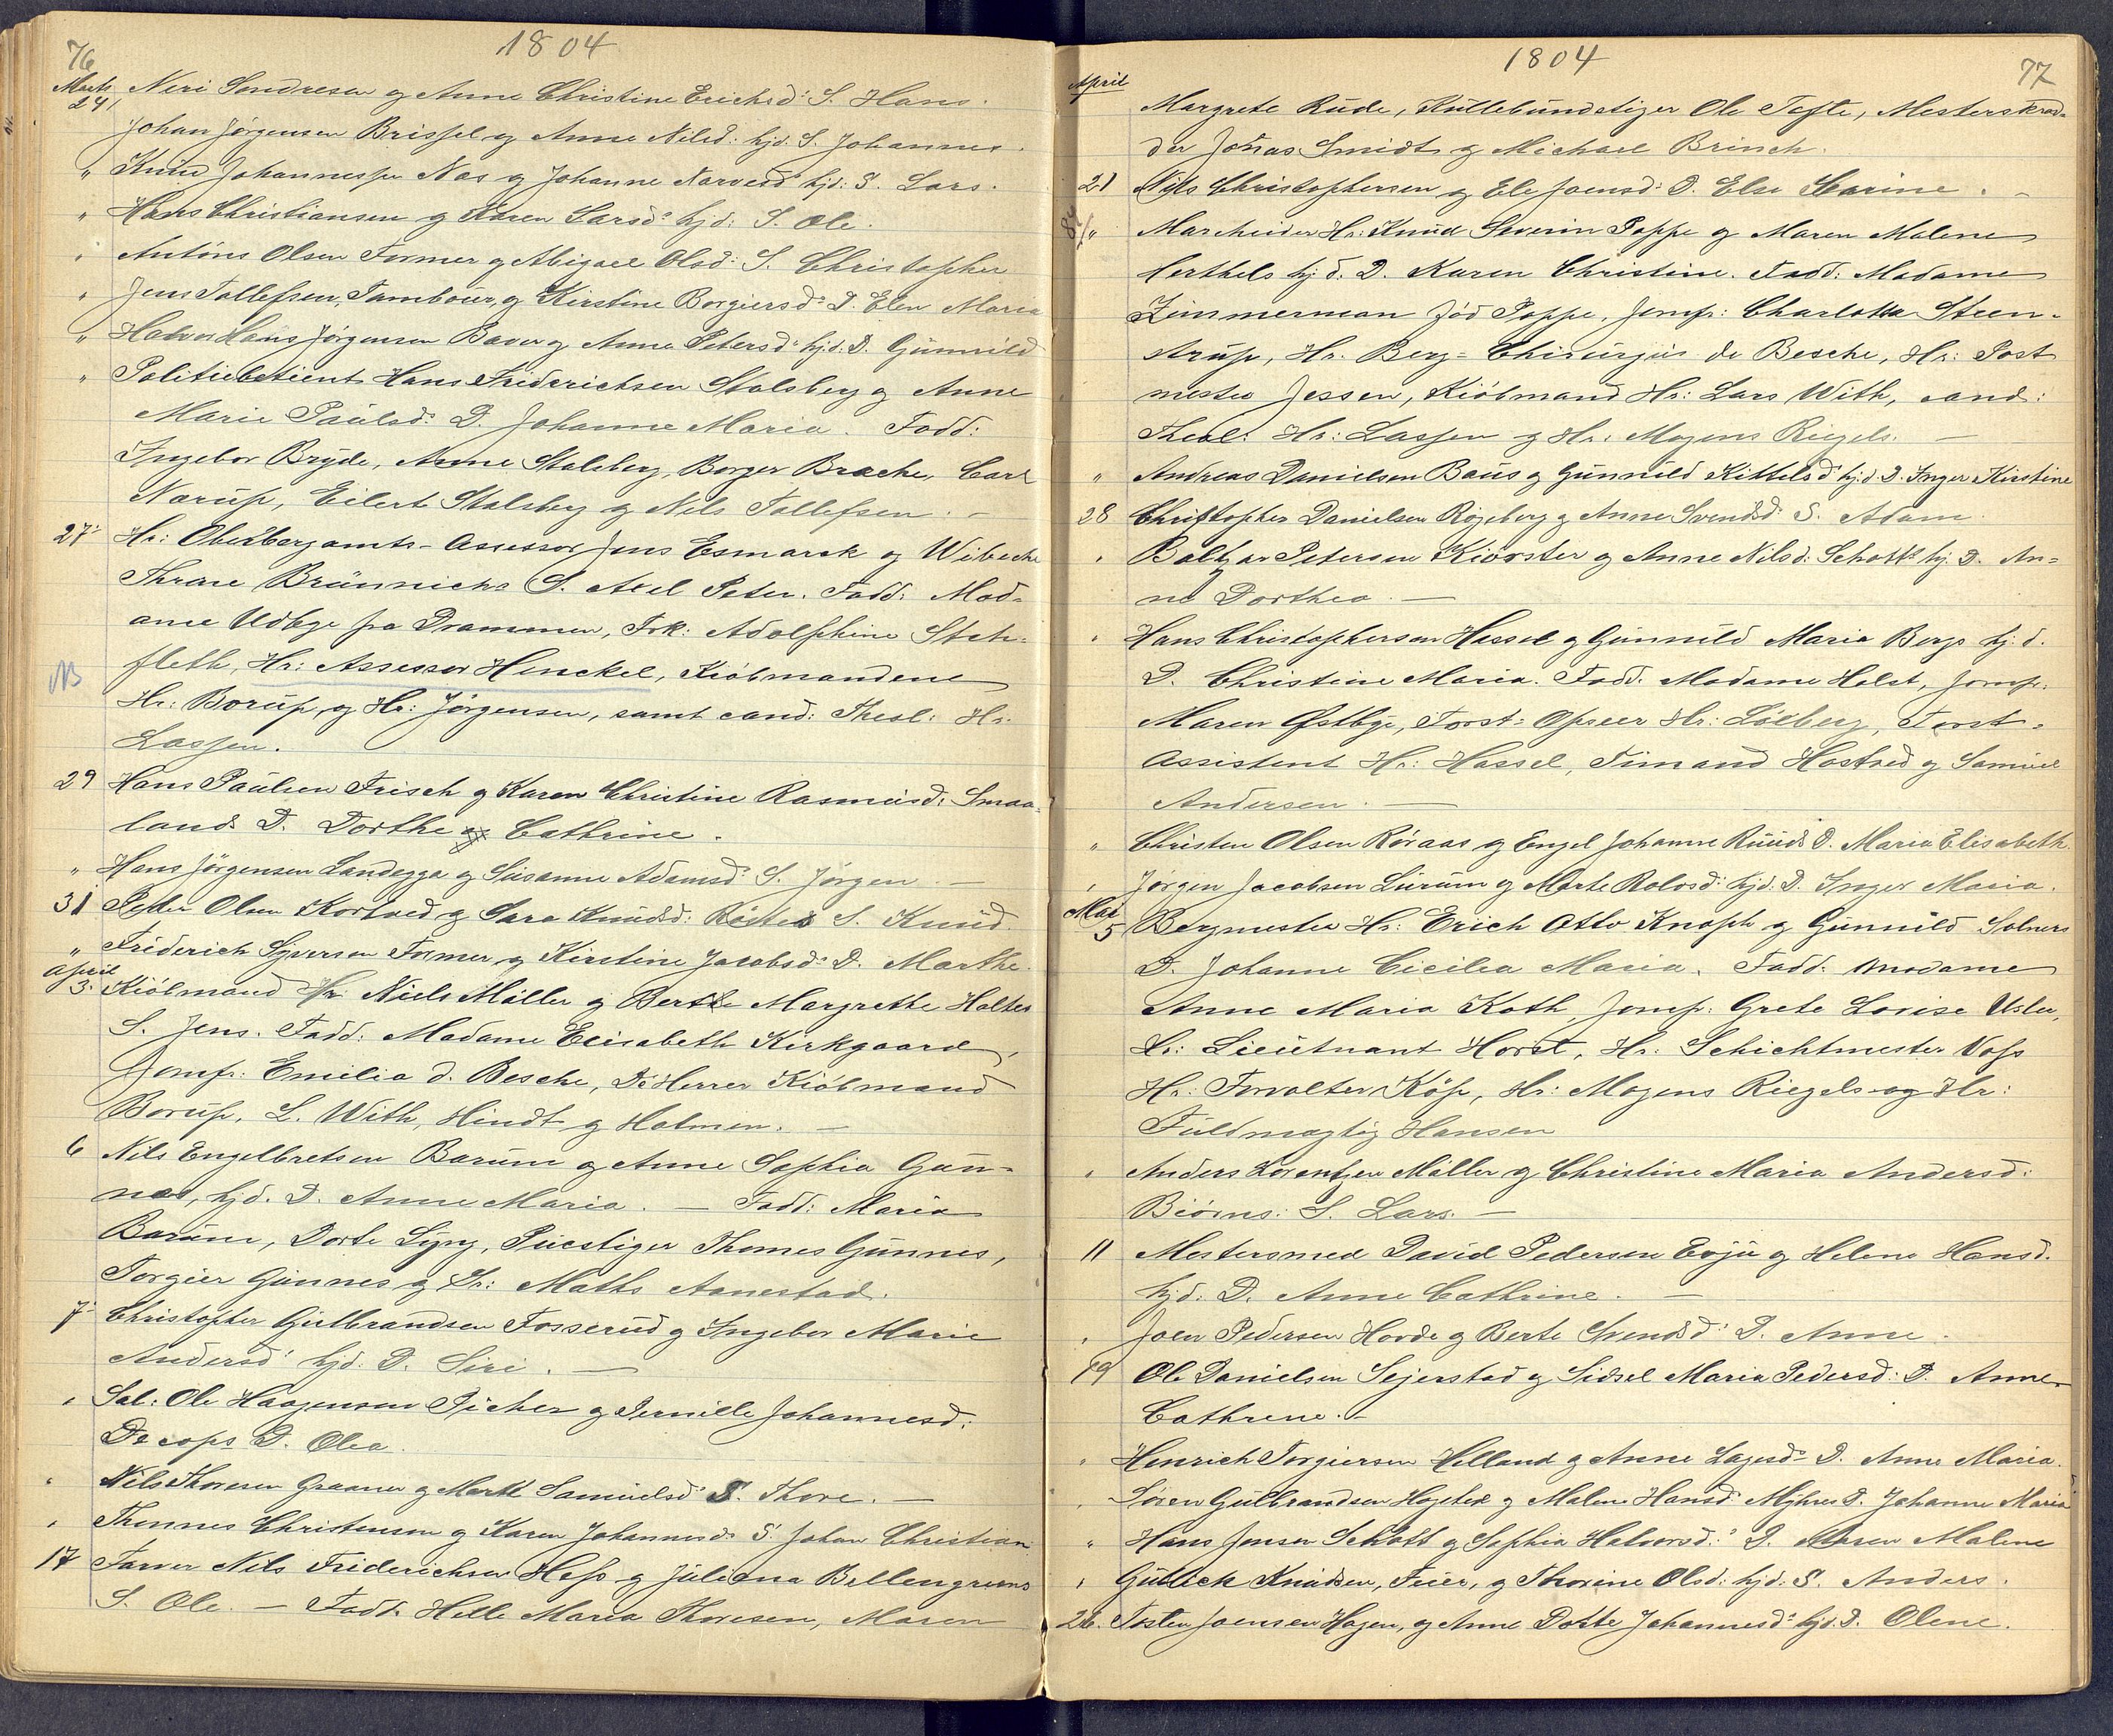 76
1804
Marts
24, Neri Sondresen og Anne Christine Erichsd: S. Hans.
Johan Jørgensen Brissel og Anne Nilsd: hjd. S. Johannes.
" Knud Johannessen Næs og Johanne Narvesd hjd: S. Lars.
" Hans Christiansen og Karen Larsd: hjd: S. Ole.
" Antóns Olsen Former og Abigael Olsd: S. Christopher
" Jens Tollefsen, Tambour, og Kirstine Borgiersd: D. Elen Maria
" Halvor Hans Jørgensen Baver og Anne Petersd: hjd: D. Gunnild
" Politiebetient Hans Friderichsen Stalsberg og Anne
Marie Paulsd: D. Johanne Maria. Fadd:
Ingebor Bryde, Anne Stalsberg, Borger Brache, Carl
Narup, Eilert Stalsberg og Nils Tollefsen. —
27: Hr: Oberbergamts-Assessor Jens Esmarck og Wibecke
Thrane Brünnichs S. Axel Peter. Fadd: Mad-
ame Udbye fra Drammen, Frk: Adolphine Stch-
fleth, Hr: Assessor Henckel, Kiöbmændene
NB
Hr: Borup, og Hr: Jörgensen, samt cand: Theol: Hr:
Lassen.
29 Hans Paulsen Frisch og Karen Christine Rasmusd: Smaa-
lands D. Dorthe Cathrine.
" Hans Jörgensen Landegga og Susanne Adamsd: S. Jörgen. —
31 Peder Olsen Kortved og Sara Knudsd: S. Knud.
" Friderich Syversen Former og Kirstine Jacobsd: D. Marthe.
April
3. Kiöbmand Hr Niels Möller og Berthe Margrethe Holtes
S. Jens. Fadd: Madame Elisabeth Kirkgaard,
Jomfr: Emilia d. Besche, De Herrer Kiöbmand
Borup, L. With, Hindt og Holmen. —
6 Nils Engelbretsen Barum og Anne Sophia Gun-
nes, hjd. D. Anne Maria. — Fadd: Maria
Barum, Dorte Lyng, Puestiger Thomes Gunnes,
Torgier Gunnes og Sr: Maths Aanestad.
7: Christopher Gulbrandsen Fosserud og Ingebor Marie
Andersd: hjd. D. Siri. —
" Sal: Ole Haagensen Pücher og Pernille Johannesd:
De cops D. Olea.
" Nils Thoresen Graaner og Marthe Samuelsd: S. Thore. —
" Thommes Christensen og Karen Johannesd: S. Johan Christian.
17 Farver Nils Friderichsen Hess og Juliana Bellengreens
S. Ole. — Fadd: Helle Maria Thoresen, Maren
77
1804
April
Margrete Rude, Hüttebundstiger Ole Tefte, Mesterskræd-
der Jonas Smidt og Michael Brinch.
21 Nils Christophersen og Ele Joensd: D. Else Carine. —
" Marcheider Hr: Knud Severin Poppe og Maren Malene
Herthels hjd. D. Karen Christine. Fadd: Madame
Zimmerman fød Poppe, Jomfr: Charlotta Steen-
strup, Hr. Berg-Chirurgus de Besche, Hr: Post
mester Jessen, Kiöbmand Hr: Lars With, cand:
Theol: Hr: Lassen og Hr: Mogens Riegels. —
" Andreas Danielsen Baus og Gunnild Kittelsd: hjd. D. Inger Kirstine
28 Christopher Danielsen Rögeberg og Anne Svendsd: S. Adam.
" Baltzar Petersen Kiörster og Anne Nilsd: Schotts hj. D. An-
ne Dorthea. —
" Hans Christophersen Hassel og Gunnild Maria Bergs hj. d.
D. Christine Maria. Fadd. Madame Holst, Jomfr:
Maren Østbye, Forst-Opseer Hr: Lölberg, Forst-
Assistent Hr: Hassel, Timand Hostved og Samuel
Andersen. —
" Christen Olsen Röraas og Engel Johanne Ruuds D. Maria Elisabeth.
" Jørgen Jacobsen Lurum og Marte Rolvsd: hjd: D. Inger Maria.
Mai
5 Bergmester Hr: Erich Otto Knoph og Gunnild Solners
D. Johanne Cicilia Maria. Fadd. Madame
Anne Maria Koth, Jomfr: Grete Lovise Usler,
Hr: Lieutnant Horst, Hr: Schichtmester Voss
Hr: Forvalter Kös, Hr: Mogens Riegels og Hr:
Fuldmægtig Hansen
" Anders Lorentzen Möller og Christine Maria Andersd:
Biörns: S. Lars. —
11 Mestersmed David Pedersen Evju og Helene Hansd.
hjd. D. Anne Cathrine. —
" Joen Pedersen Hovde og Berte Svendsd: D. Anne.
19 Ole Danielsen Sejerstad og Sidsel Maria Pedersd: D. Anne
Cathrene. —
" Henrich Torgiersen Helland og Anne Lagesd: D. Anne Maria.
" Sören Gulbrandsen og Malene Hansd: Myhres D. Johanne Maria
" Hans Jensen Schott og Sophia Halvorsd: D. Maren Malene
" Gullick Knudsen, Feier, og Thorine Olsd: hjd: S. Anders.
26. Tosten Joensen Hagen, og Anne Dorte Johannesd: hjd. D. Olene.